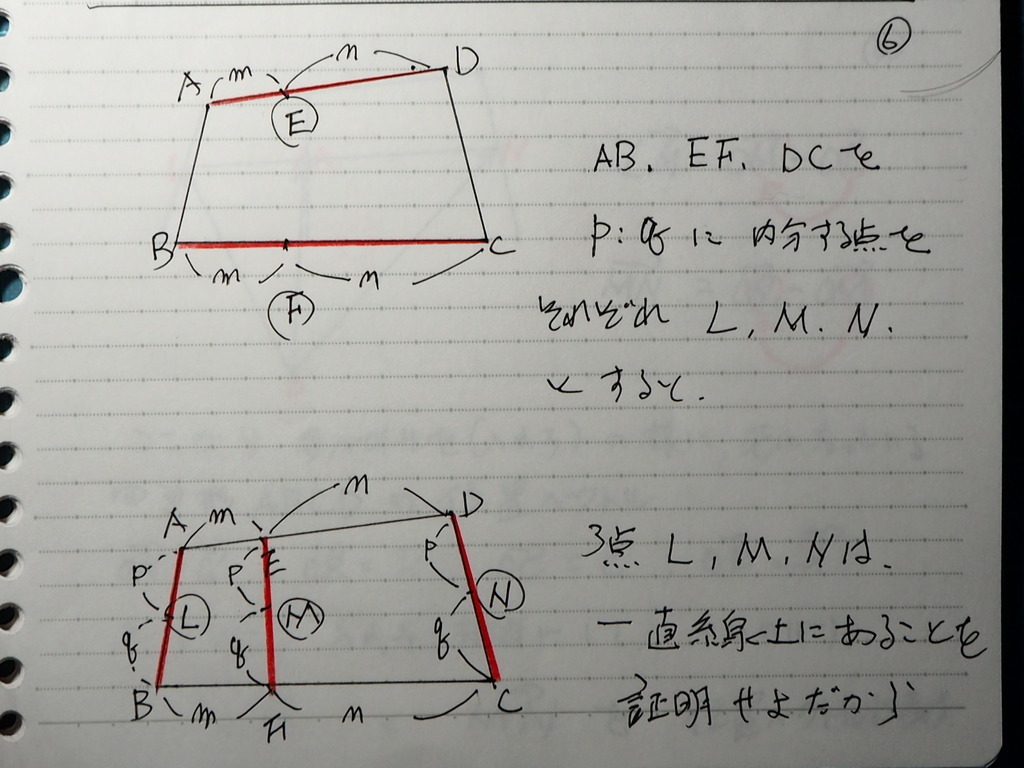 ⑥
m n
A D
E
B C
m n
F
AB. EF. DCを
p:qに内分する点を
それぞれ L, M. N.
とすると.
m n
A D
E
p p p
L M N
q q q
B C
m n
F
3点 L, M, Nは.
一直線上にあることを
証明せよだから